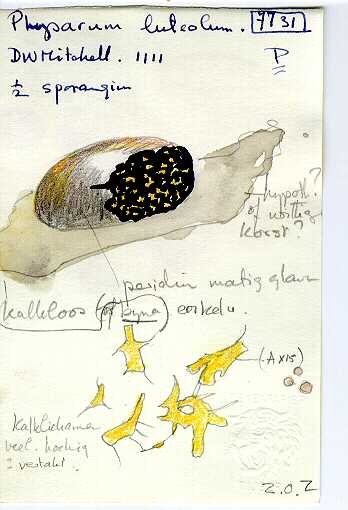 Physarum luteolum. 7731
DWMitchell. 1111
P
½ sporangium
hypoth?
of
korst?
peridin matig glanz
kalkloos (of bijna) enkelv.
(AX15)
Kalklichamen
veel hoekig
± vertakt.
2.0.2